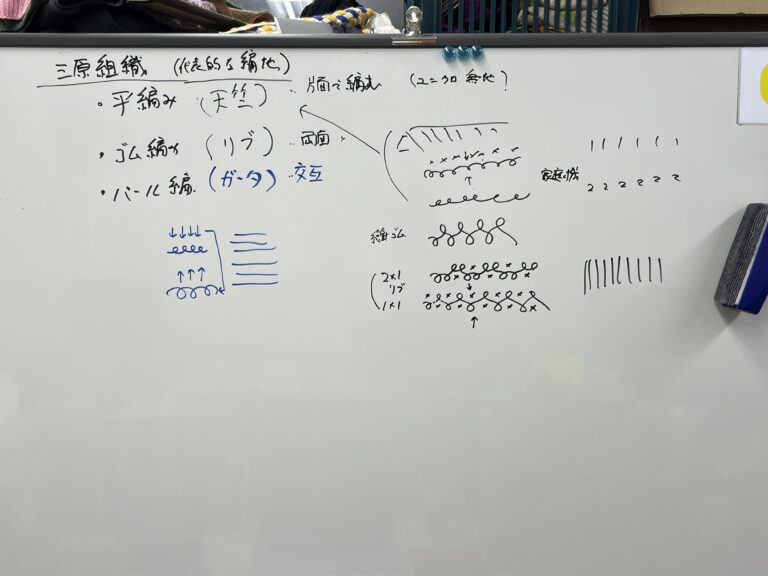 三原組織 (代表的な編地)
・平編み (天竺) 片面で編む
・ゴム編み (リブ) 両面
・パール編 (ガータ) 交互
家庭機
2 2 2 2 2 2
総ゴム
2×1
リブ
1×1